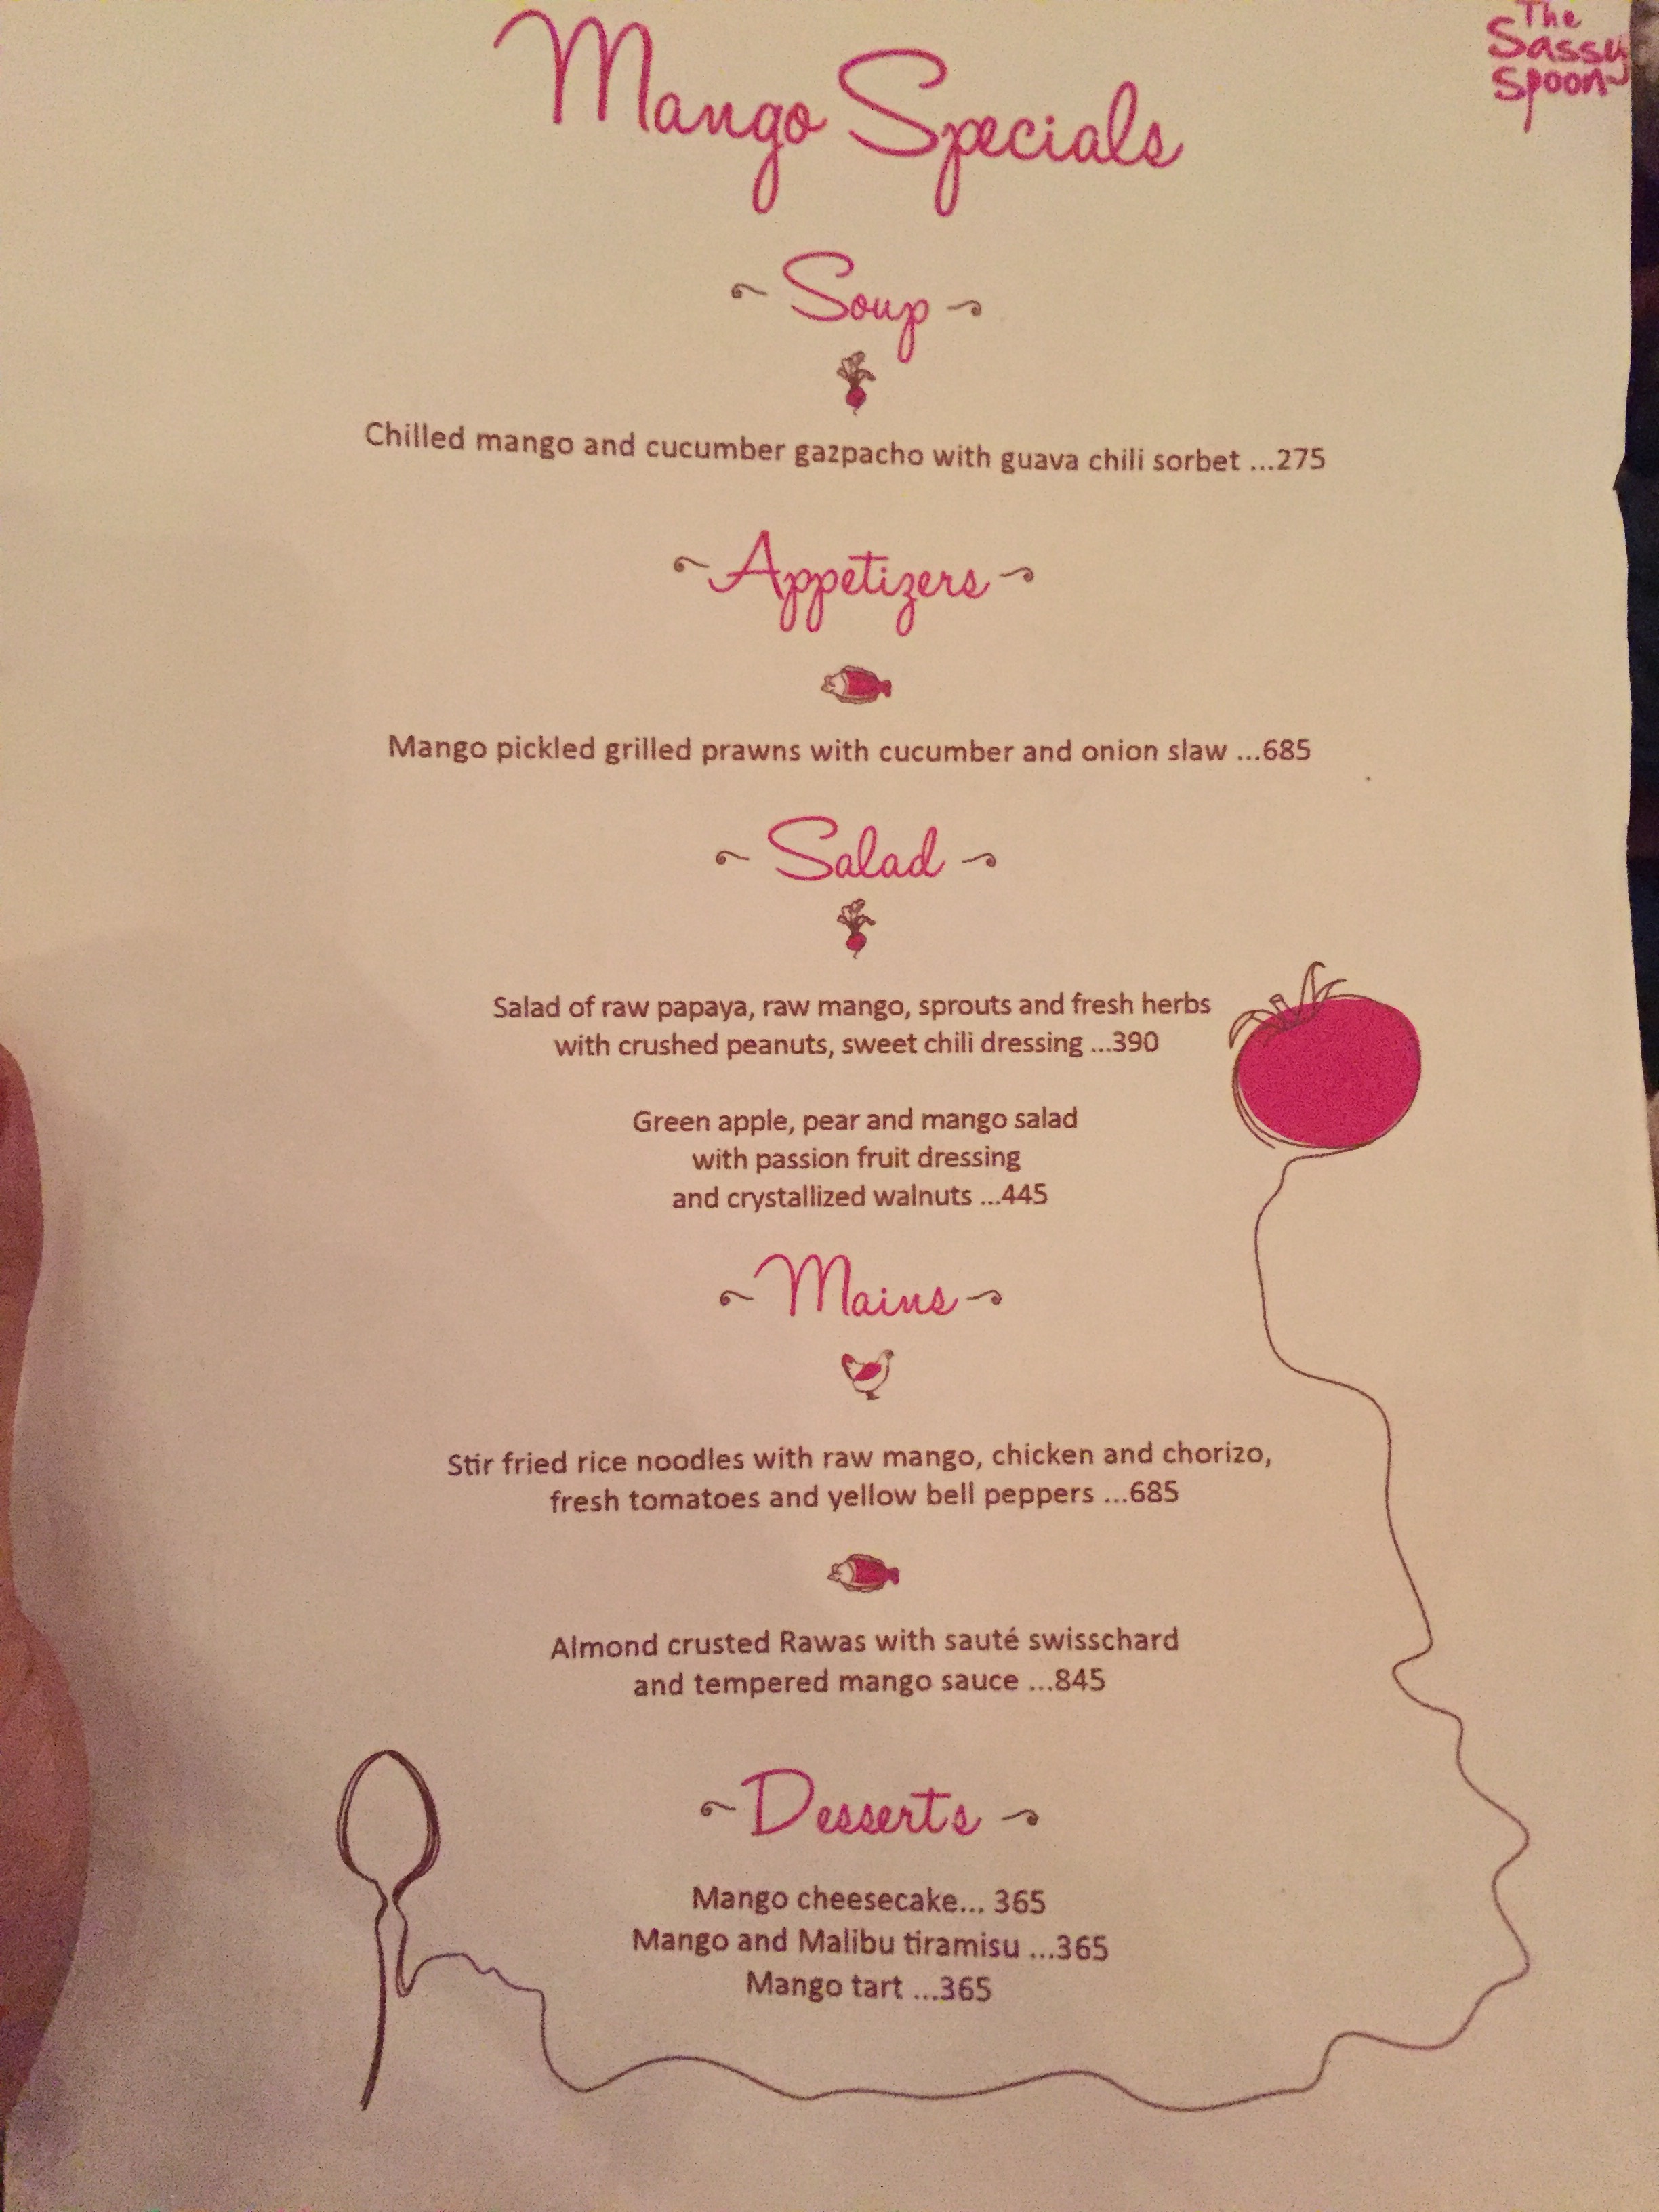 The
Sassy
Spoon
Mango Specials
Soup
Chilled mango and cucumber gazpacho with guava chili sorbet ...275
Appetizers
Mango pickled grilled prawns with cucumber and onion slaw ...685
Salad
Salad of raw papaya, raw mango, sprouts and fresh herbs
with crushed peanuts, sweet chili dressing ...390
Green apple, pear and mango salad
with passion fruit dressing
and crystallized walnuts ...445
Mains
Stir fried rice noodles with raw mango, chicken and chorizo,
fresh tomatoes and yellow bell peppers ...685
Almond crusted Rawas with sauté swisschard
and tempered mango sauce ...845
Desserts
Mango cheesecake... 365
Mango and Malibu tiramisu ...365
Mango tart ...365